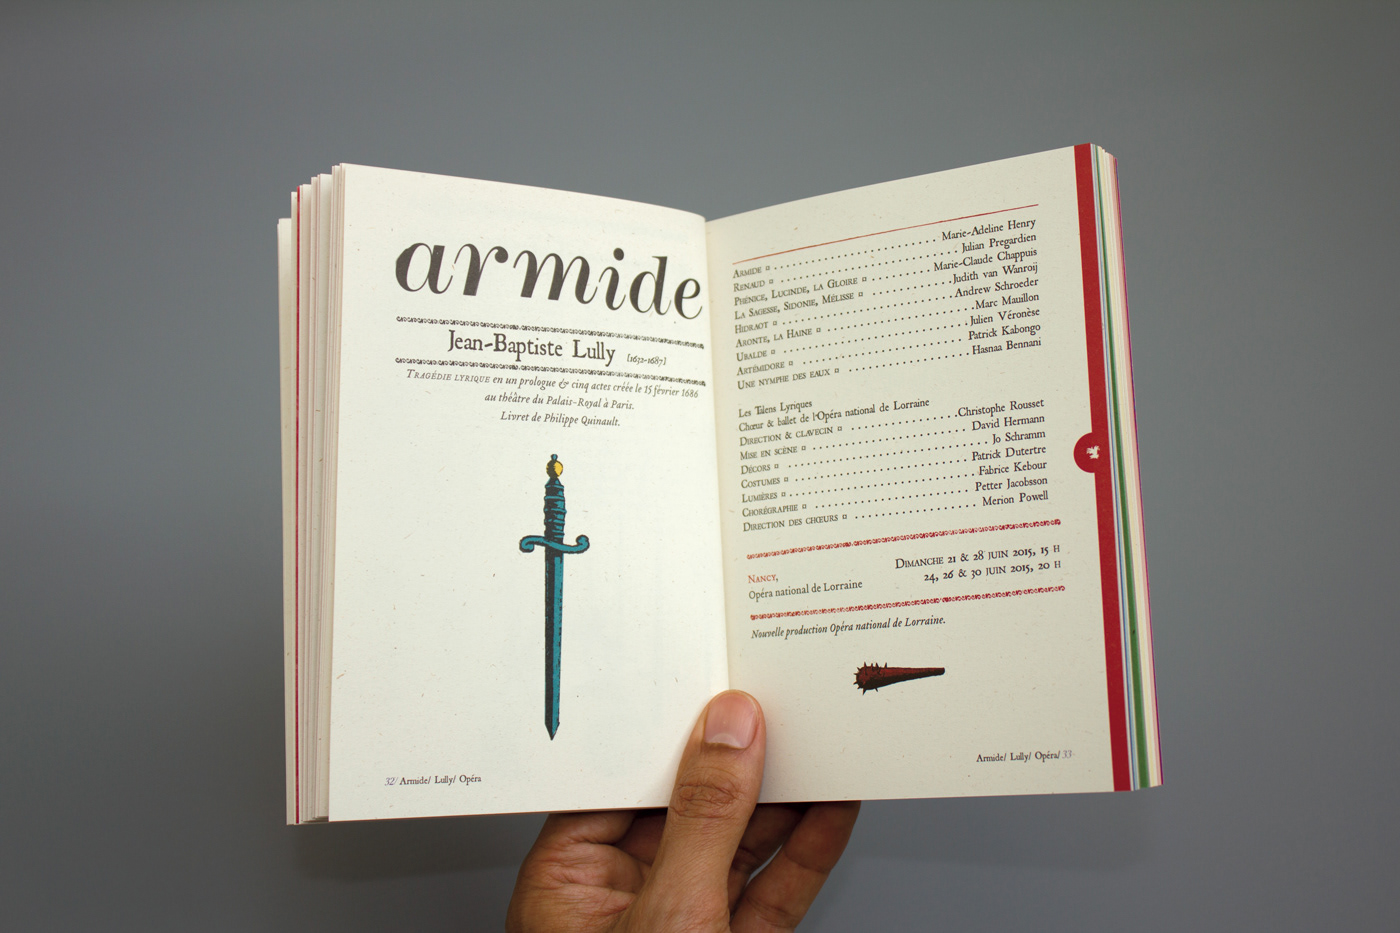 armide
Jean-Baptiste Lully [1632-1687]
Tragédie lyrique en un prologue & cinq actes créée le 15 février 1686
au théâtre du Palais-Royal à Paris.
Livret de Philippe Quinault.
32/ Armide/ Lully/ Opéra
Armide ¤ .......................... Marie-Adeline Henry
Renaud ¤ .......................... Julian Pregardien
Phénice, Lucinde, la Gloire ¤ .......... Marie-Claude Chappuis
La Sagesse, Sidonie, Mélisse ¤ .......... Judith van Wanroij
Hidraot ¤ .......................... Andrew Schroeder
Aronte, la Haine ¤ .................... Marc Mauillon
Ubalde ¤ .......................... Julien Véronèse
Artémidore ¤ ....................... Patrick Kabongo
Une nymphe des eaux ¤ ............... Hasnaa Bennani
Les Talens Lyriques
Chœur & ballet de l'Opéra national de Lorraine
Direction & clavecin ¤ ............... Christophe Rousset
Mise en scène ¤ .................... David Hermann
Décors ¤ .......................... Jo Schramm
Costumes ¤ ....................... Patrick Dutertre
Lumières ¤ ....................... Fabrice Kebour
Chorégraphie ¤ .................... Petter Jacobsson
Direction des chœurs ¤ ............... Merion Powell
Nancy,
Opéra national de Lorraine
Dimanche 21 & 28 juin 2015, 15 h
24, 26 & 30 juin 2015, 20 h
Nouvelle production Opéra national de Lorraine.
Armide/ Lully/ Opéra/ 33